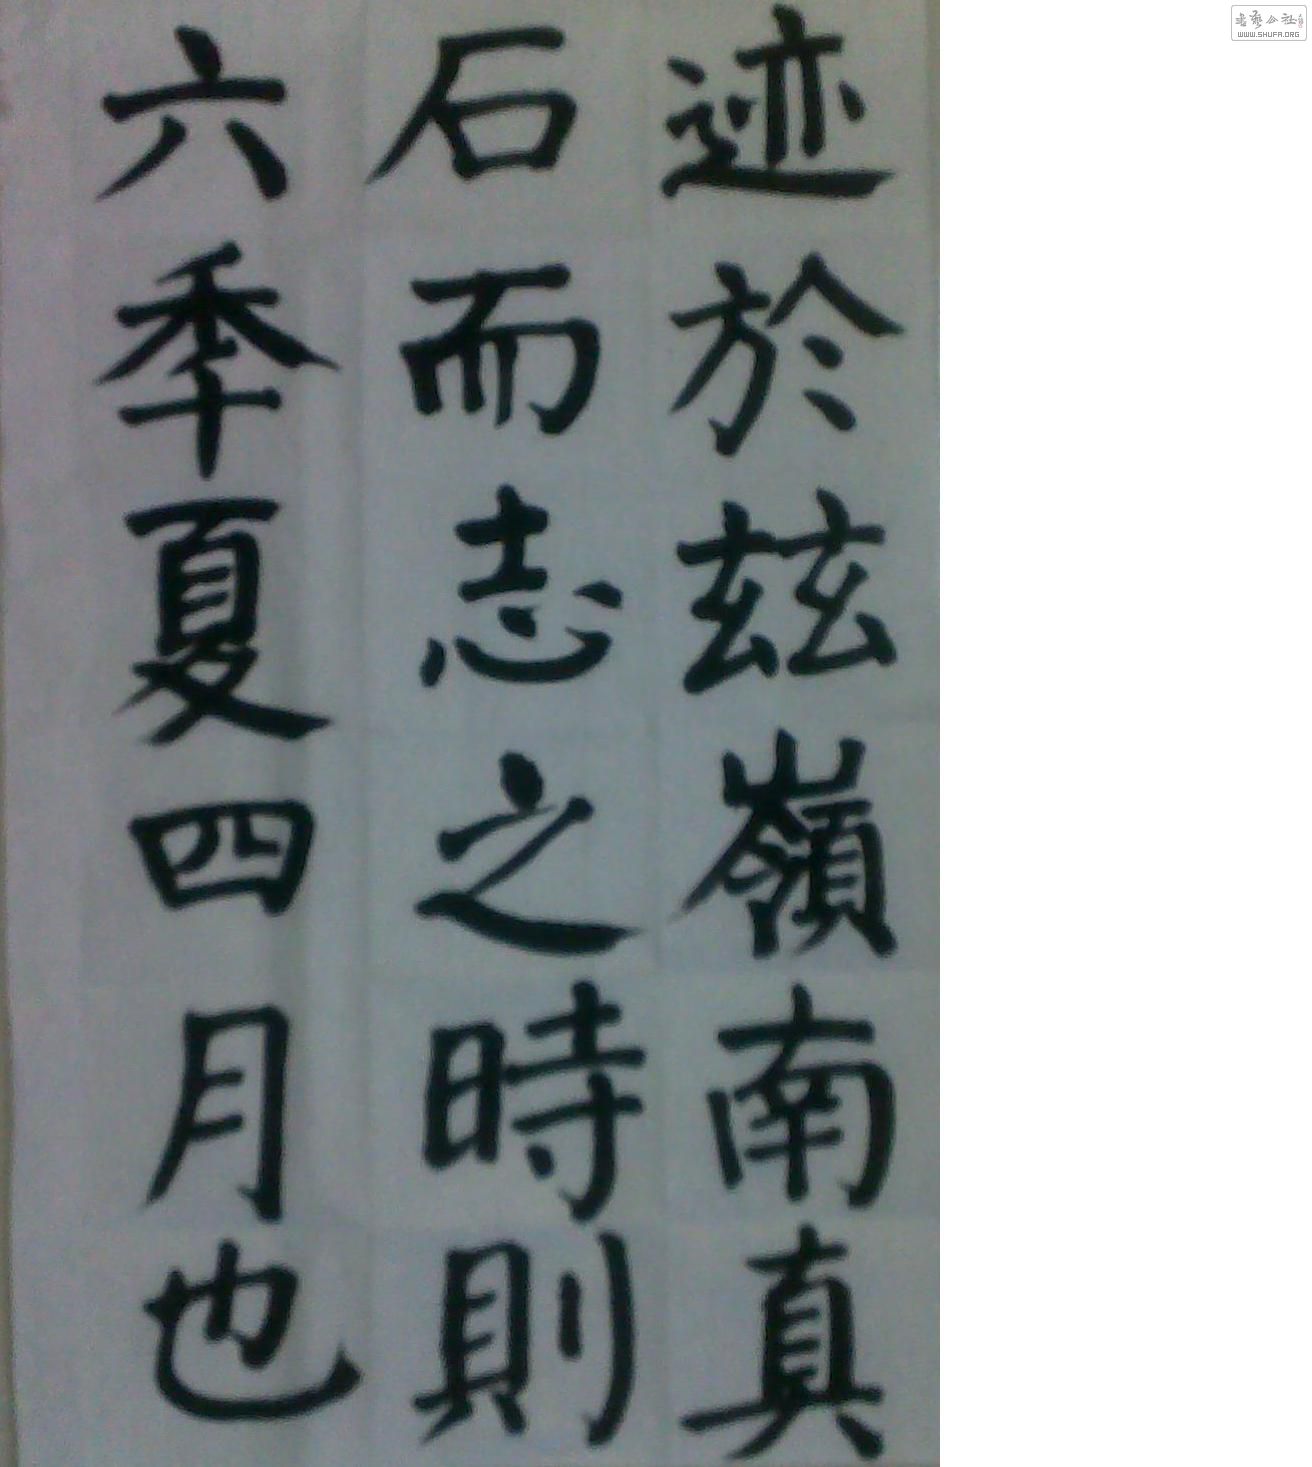 迹於兹嶺南真
石而志之時則
六季夏四月也
WWW.SHUFA.ORG